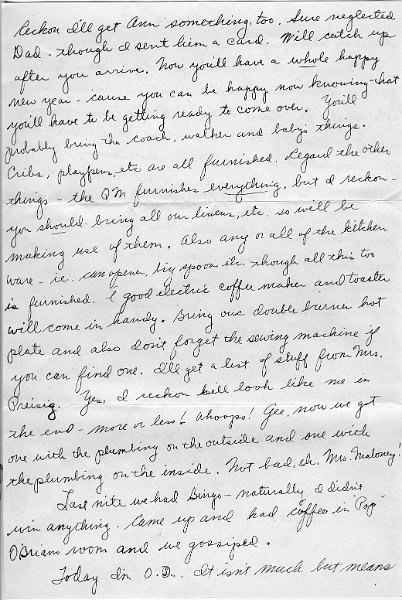 Reckon I'll get Ann something, too. Sure neglected
Dad - though I sent him a card. Will catch up
after you arrive. Now you'll have a whole happy
new year - cause you can be happy now knowing that
you'll have to be getting ready to come over. You'll
probably bring the coach, walker and baby's things.
Cribs, playpens, etc are all furnished. Regard the other
things - the QM furnishes everything, but I reckon
you should bring all our linens, etc. so will be
making use of them. Also any or all of the kitchen
ware - ie. can opener, big spoons etc. though all this too
is furnished. A good electric coffee maker and toaster
will come in handy. Bring our double burner hot
plate and also don't forget the sewing machine if
you can find one. I'll get a list of stuff from Mrs.
Preisig. Yes, I reckon he'll look like me in
the end - more or less! Whoops! Gee, now we got
one with the plumbing on the outside and one with
the plumbing on the inside. Not bad, eh, Mrs. Maloney!
Last nite we had Bingo - naturally I didn't
win anything. Came up and had coffee in "Pop"
O'Brians room and we gossiped.
Today I'm O.D. It isn't much but means